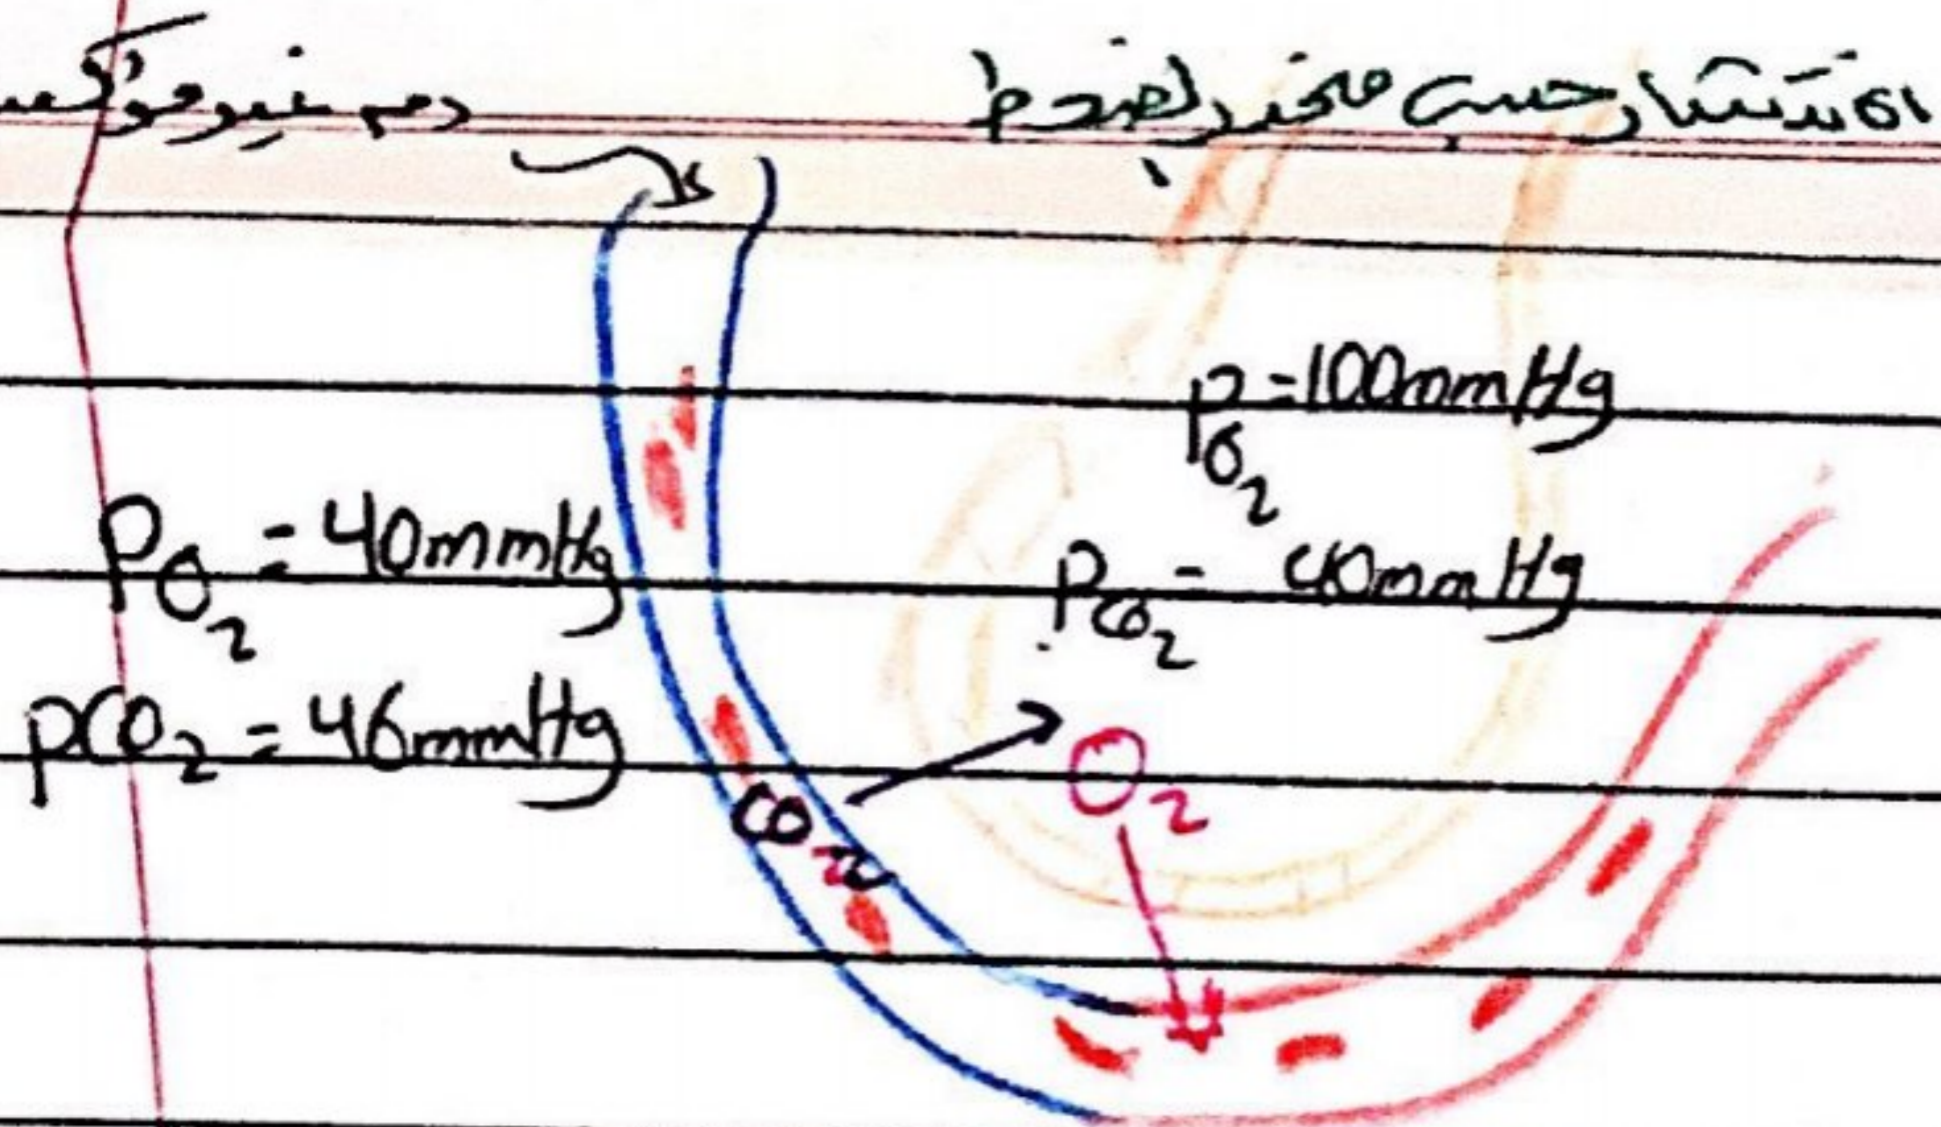 الانتشار حسب منحدر الضغط
دم غير مؤكسد
P O2 = 100mmHg
P CO2 = 40mmHg
P O2 = 40mmHg
PCO2 = 46mmHg
CO2
O2